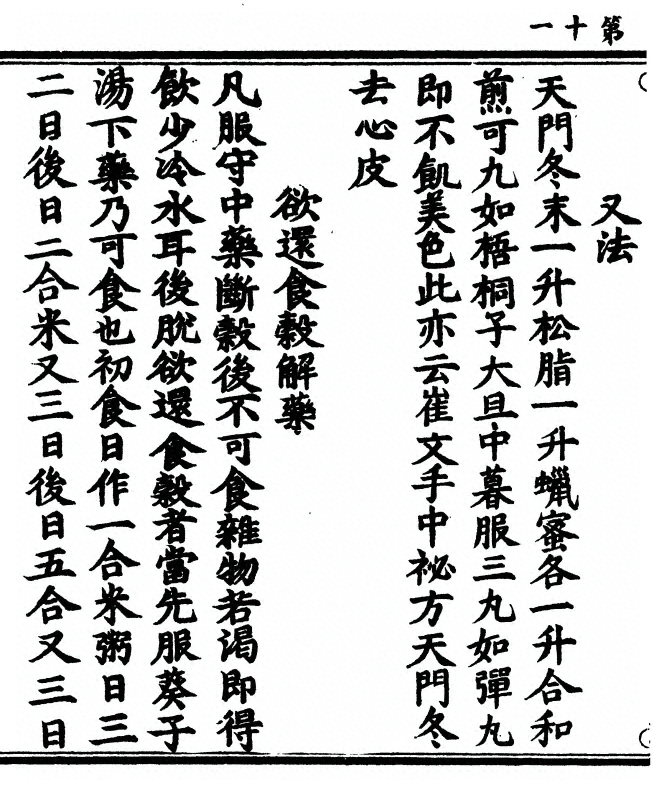 第十一
又法
天門冬末一升松脂一升蠟蜜各一升合和
煎可九如梧桐子大旦中暮服三丸如彈丸
即不飢美色此亦云崔文手中祕方天門冬
去心皮
欲還食糓解藥
凡服守中藥斷糓後不可食雜物若渴即得
飲少冷水耳後脫欲還食糓者當先服葵子
湯下藥乃可食也初食日作一合米粥日三
二日後日二合米又三日後日五合又三日